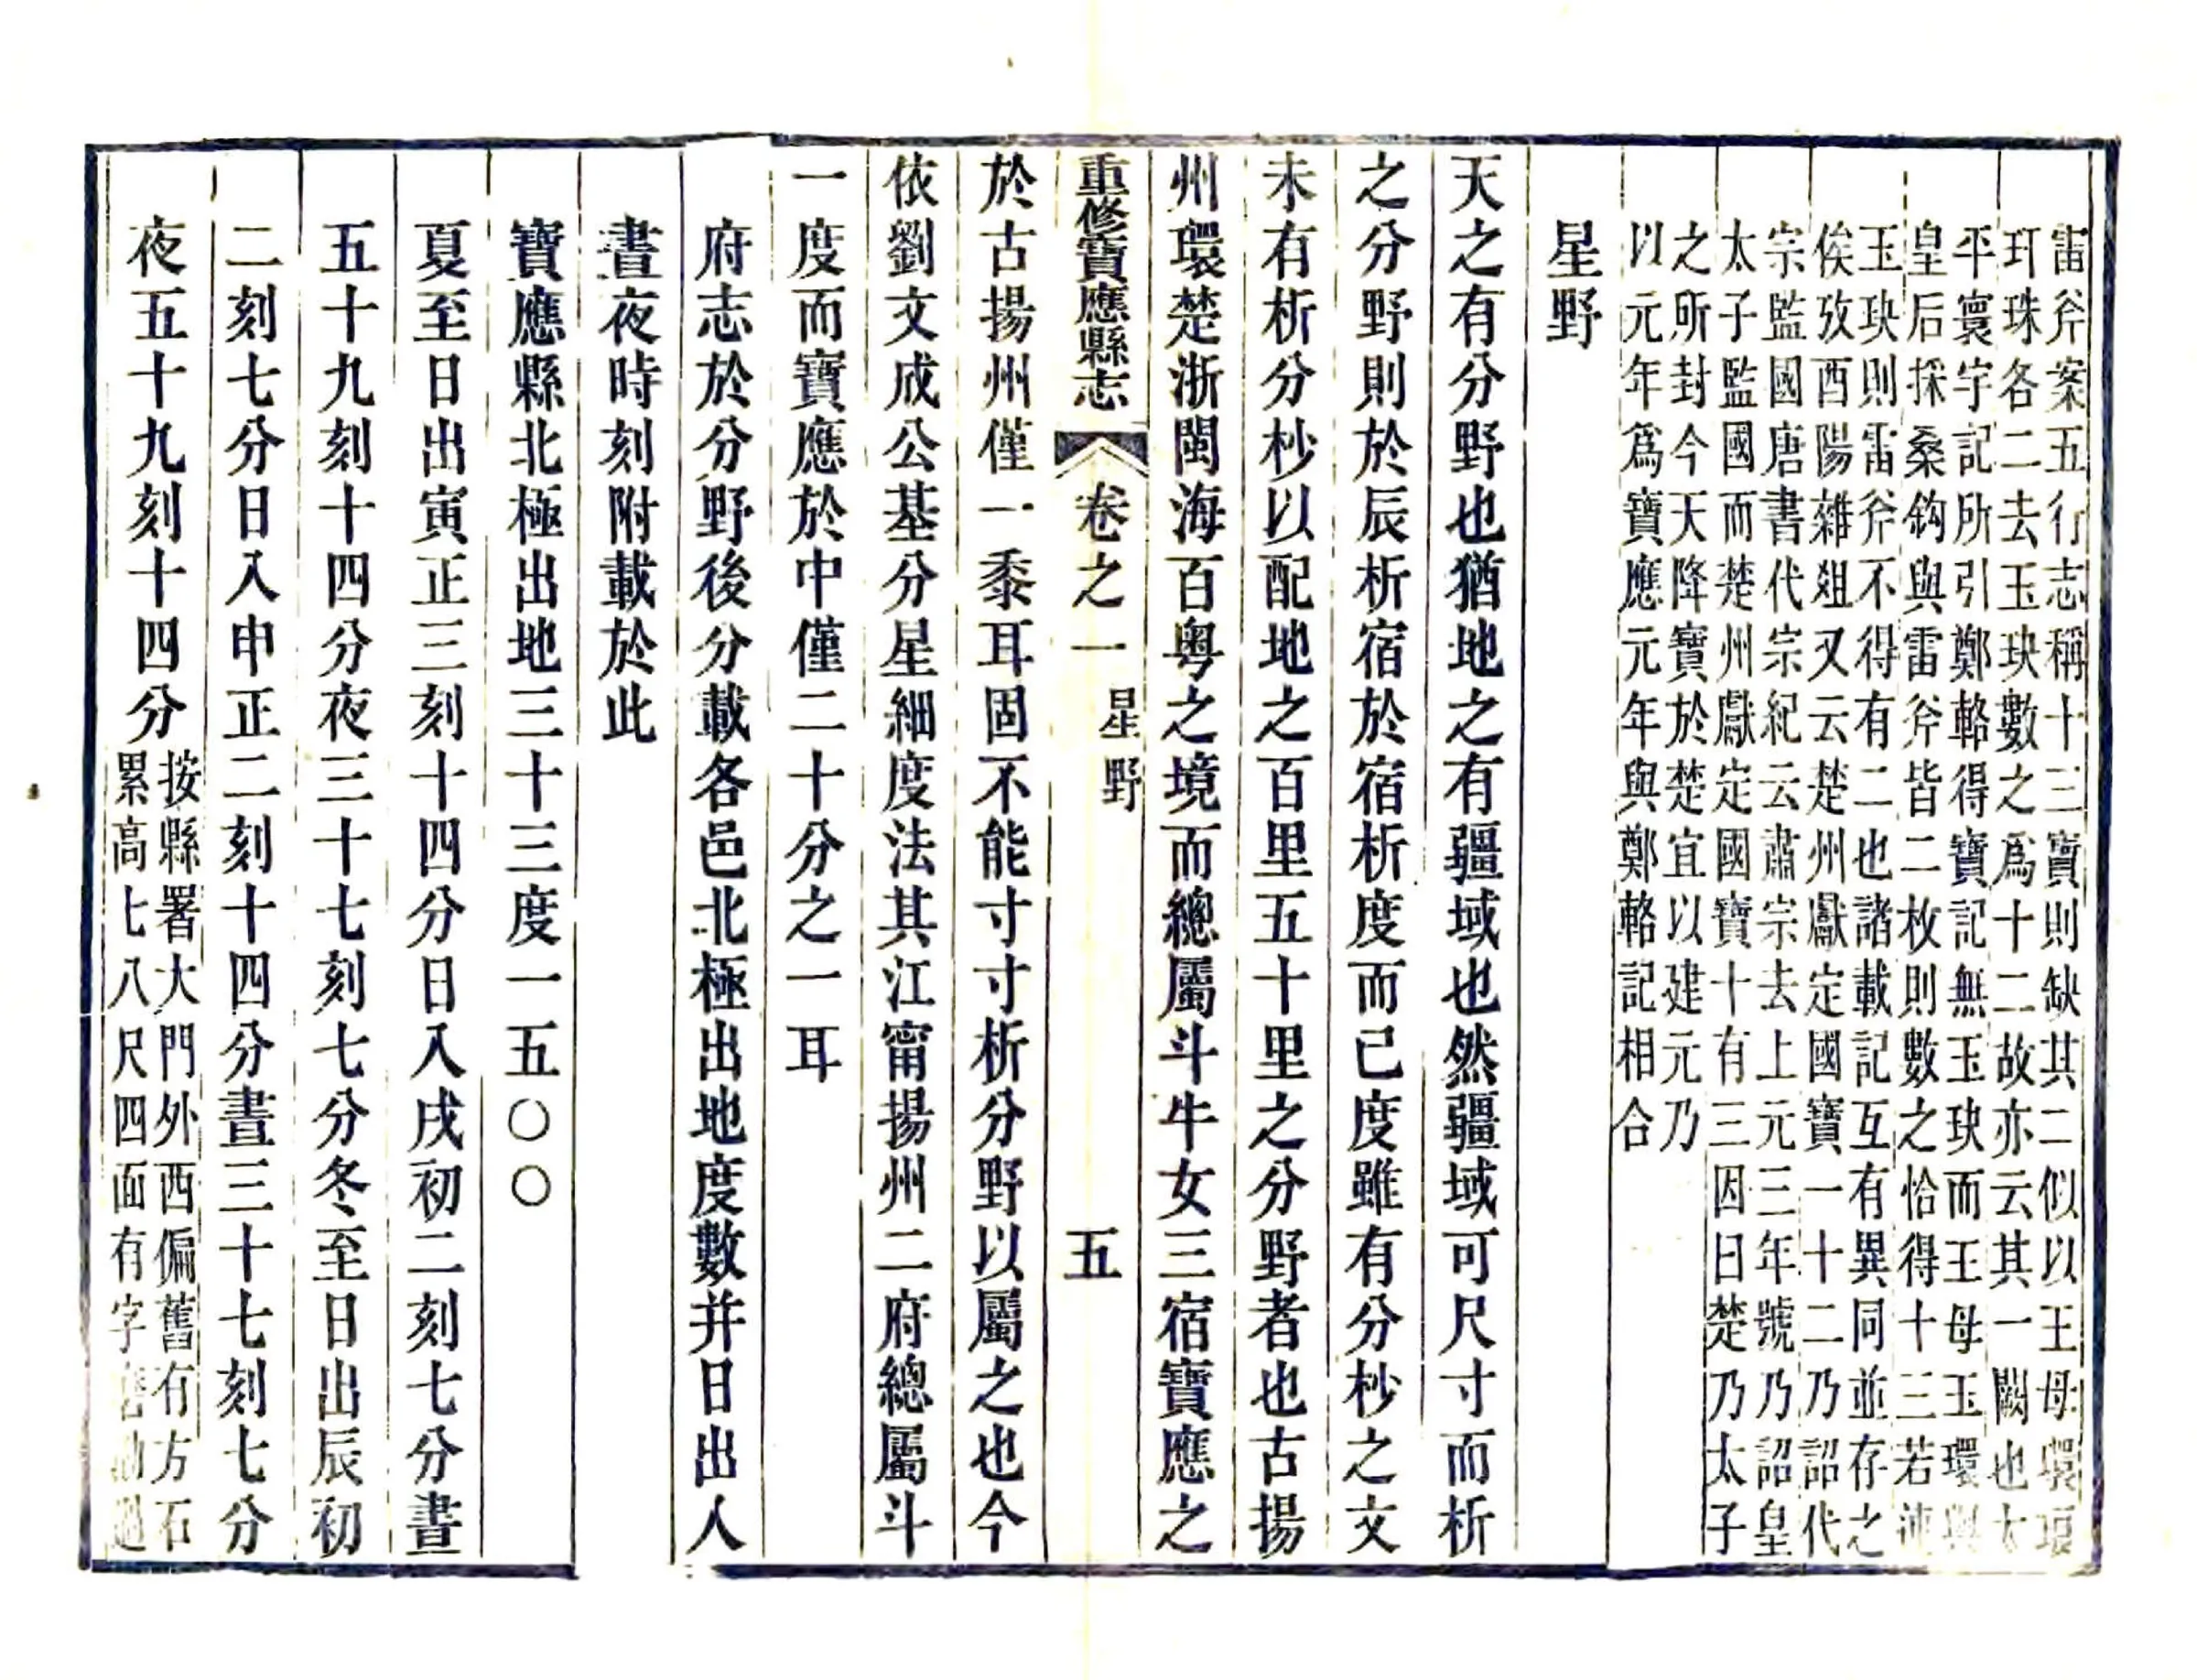 雷斧案五行志稱十三寶則缺其二似以王母環琅
玕珠各二去玉玦數之爲十二故亦云其一闕也太
平寰宇記所引鄭輅得寶記無玉玦而王母玉環與
皇后採桑鈎與雷斧皆二枚則數之恰得十三若
玉玦則雷斧不得有二也諸載記互有異同並存之
俟攷酉陽雜俎又云楚州獻定國寶一十二乃詔代
宗監國唐書代宗紀云肅宗去上元三年號乃詔皇
太子監國而楚州獻定國寶十有三因曰楚乃太子
之所封今天降寶於楚宜以建元乃
以元年爲寶應元年與鄭輅記相合
星野
天之有分野也猶地之有疆域也然疆域可尺寸而析
之分野則於辰析宿於宿析度而已度雖有分杪之文
未有析分杪以配地之百里五十里之分野者也古揚
州環楚浙閩海百粵之境而總屬斗牛女三宿寶應之
重修寶應縣志 卷之一 星野 五
於古揚州僅一黍耳固不能寸寸析分野以屬之也今
依劉文成公基分星細度法其江甯揚州二府總屬斗
一度而寶應於中僅二十分之一耳
府志於分野後分載各邑北極出地度數并日出人
晝夜時刻附載於此
寶應縣北極出地三十三度一五〇〇
夏至日出寅正三刻十四分日入戌初二刻七分晝
五十九刻十四分夜三十七刻七分冬至日出辰初
二刻七分日入申正二刻十四分晝三十七刻七分
夜五十九刻十四分
按縣署大門外西偏舊有方石
累高七八尺四面有字